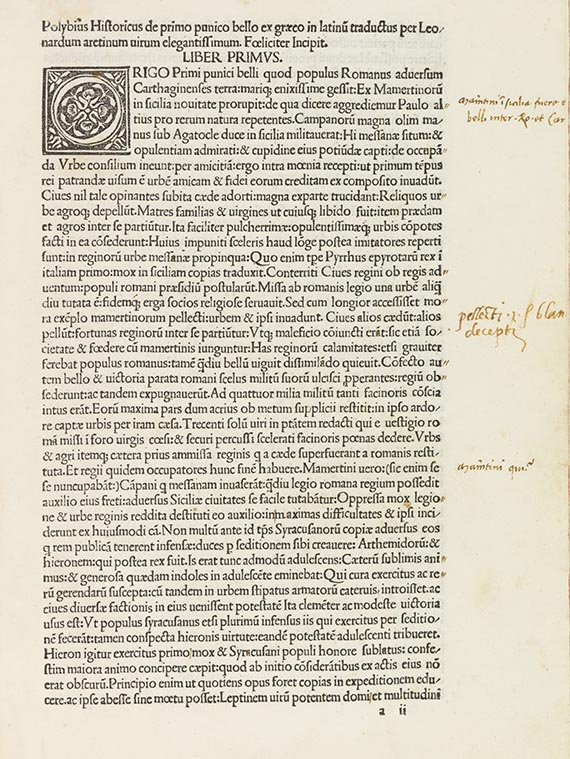 Polybius Historicus de primo punico bello ex græco in latinũ traductus per Leo/
nardum aretinum uirum elegantissimum. Fœliciter Incipit.
LIBER PRIMVS.
ORIGO Primi punici belli quod populus Romanus aduersum
Carthaginenses terra:mariq; enixissime gessit:Ex Mamertinorũ
in sicilia nouitate prorupit:de qua dicere aggrediemur Paulo al/
tius pro rerum natura repetentes.Campanorũ magna olim ma/
nus sub Agatocle duce in sicilia militauerat:Hi messanæ situm:&
opulentiam admirati:& cupidine eius potiũdæ capti:de occupã/
da Vrbe consilium ineunt:per amicitiã:ergo intra mœnia recepti:ut primum tẽpus
rei patrandæ uisum ẽ urbẽ amicam & fidei eorum creditam ex composito inuadũt.
Ciues nil tale opinantes subita cæde adorti:magna exparte trucidant:Reliquos ur/
be agroq; depellũt.Matres familias & uirgines ut cuiusq; libido fuit:item prædam
et agros inter se partiũtur.Ita faciliter pulcherrimæ:opulentissimæq; urbis cõpotes
facti in ea cõsederunt:Huius impuniti sceleris haud lõge postea imitatores reperti
sunt:in reginorũ urbe messanæ propinqua:Quo enim tpe Pyrrhus epyrotarũ rex ĩ
italiam primo:mox in siciliam copias traduxit.Conterriti Ciues regini ob regis ad/
uentum:populi romani præsidiũ postularũt.Missa ab romanis legio una urbẽ aliq̃
diu tutata ẽ:fidemq; erga socios religiose seruauit.Sed cum longior accessisset mo/
ra exẽplo mamertinorum pellecti:urbem & ipsi inuadunt. Ciues alios cædũt:alios
pellũt:fortunas reginorũ inter se partiũtur:Vtq; maleficio cõiuncti erãt:sic etiã so/
cietate & fœdere cũ mamertinis iunguntur:Has reginorũ calamitates:etsi grauiter
ferebat populus romanus:tamẽ q̃diu bellũ uiguit dissimilãdo quieuit.Cõfecto au/
tem bello & uictoria parata romani scelus militũ suorũ ulcisci pperantes:regiũ ob/
sederunt:ac tandem expugnauerũt.Ad quattuor milia militũ tanti facinoris cõscia
intus erãt.Eorũ maxima pars dum acrius ob metum supplicii restitit:in ipso ardo/
re captæ urbis per iram cæsa.Trecenti solũ uiri in ptãtem redacti qui e uestigio ro
mã missi ĩ foro uirgis cœsi:& securi percussi scelerati facinoris pœnas dedere.Vrbs
& agri itemq; cætera prius ammissa reginis q a cæde superfuerant a romanis resti/
tuta.Et regii quidem occupatores hunc finẽ habuere.Mamertini uero:(sic enim se
se nuncupabãt)Cãpani q messanam inuaserãt:q̃diu legio romana regium possedit
auxilio eius freti:aduersus Siciliæ ciuitates se facile tutabãtur:Oppressa mox legio/
ne & urbe reginis reddita destituti eo auxilio:in maximas difficultates & ipsi inci/
derunt ex huiusmodi cã.Non multũ ante id tp̃s Syracusanorũ copiæ aduersus eos
q rem publicã tenerent infensæ:duces p seditionem sibi creauere: Arthemidorũ:&
hieronem:qui postea rex fuit.Is erat tunc admodũ adulescens:Cæterũ sublimis ani
mus:& generosa quædam indoles in adulescẽte eminebat:Qui cura exercitus ac re/
rũ gerendarũ suscepta:cũ tandem in urbem stipatus armatorũ cateruis introisset.ac
ciues diuersæ factionis in eius uenissent potestatẽ Ita clemẽter ac modeste uictoria
usus est:Vt populus syracusanus etsi plurimũ infensus iis qui exercitus per seditio/
nẽ fecerãt:tamen conspecta hieronis uirtute:eandẽ potestatẽ adulescenti tribueret.
Hieron igitur exercitus primo:mox & Syracusani populi honore sublatus: confe/
stim maiora animo concipere cæpit:quod ab initio cõsiderãtibus ex actis eius nõ
erat obscurũ.Principio enim ut quotiens opus foret copias in expeditionem edu/
cere.ac ipse abesse sine mœtu posset:Leptinem uirũ potentem domi:et multitudini
a ii
mamtini ĩ sicilia fuere
bello inter
pellecti
decepti
mamtini